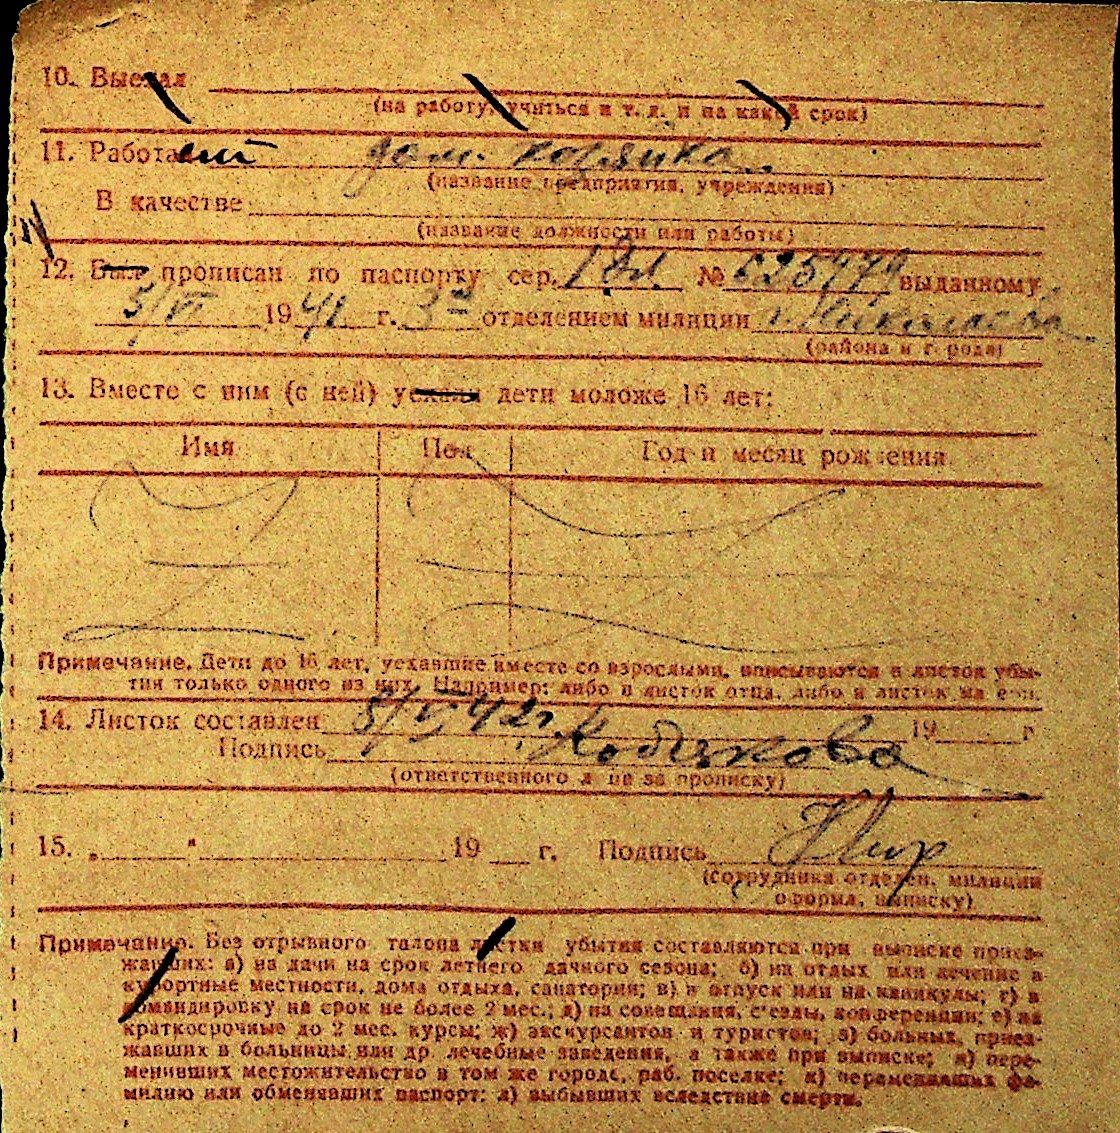 10. Выехал
(на работу, учиться и т. д. и на какой срок)
11. Работает дом. хозяйка
(название предприятия, учреждения)
В качестве
(название должности или работы)
12. Был прописан по паспорту сер. № 625479 выданному
5/VI 1941 г. 3м отделением милиции г. Николаева
(района и города)
13. Вместе с ним (с ней) уехали дети моложе 16 лет:
Имя Пол Год и месяц рождения
Примечание. Дети до 16 лет, уехавшие вместе со взрослыми, вписываются в листок убы-
тия только одного из них. Например: либо в листок отца, либо в листок матери.
14. Листок составлен 5/V 42г. 19 г
Подпись
(ответственного лица за прописку)
15. „ " 19 г. Подпись
(сотрудника отделен. милиции
оформл. выписку)
Примечание. Без отрывного талона листки убытия составляются при выписке приез-
жавших: а) на дачи на срок летнего дачного сезона; б) на отдых или лечение в
курортные местности, дома отдыха, санатории; в) в отпуск или на каникулы; г) в
командировку на срок не более 2 мес.; д) на совещания, съезды, конференции; е) на
краткосрочные до 2 мес. курсы; ж) экскурсантов и туристов; з) больных, приез-
жавших в больницы или др. лечебные заведения, а также при выписке; и) пере-
менивших местожительство в том же городе, раб. поселке; к) переменивших фа-
милию или обменявших паспорт; л) выбывших вследствие смерти.